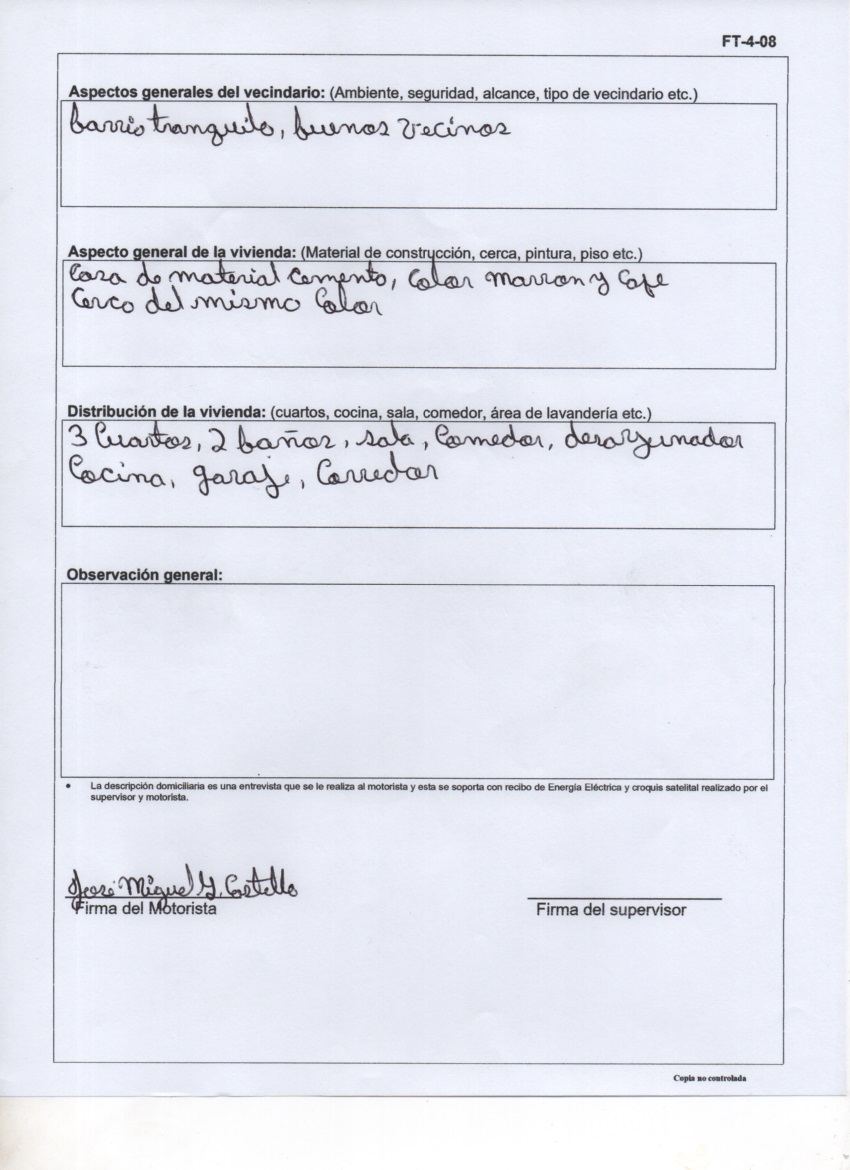 FT-4-08
Aspectos generales del vecindario: (Ambiente, seguridad, alcance, tipo de vecindario etc.)
barrio tranquilo, buenos vecinos
Aspecto general de la vivienda: (Material de construcción, cerca, pintura, piso etc.)
Casa de material Cemento, Color Marron y Cafe
Cerco del mismo Color
Distribución de la vivienda: (cuartos, cocina, sala, comedor, área de lavandería etc.)
3 Cuartos, 2 baños, sala, Comedor, desayunador
Cocina, garaje, Corredor
Observación general:
• La descripción domiciliaria es una entrevista que se le realiza al motorista y esta se soporta con recibo de Energía Eléctrica y croquis satelital realizado por el
supervisor y motorista.
José Miguel G. Castillo
Firma del Motorista
Firma del supervisor
Copia no controlada